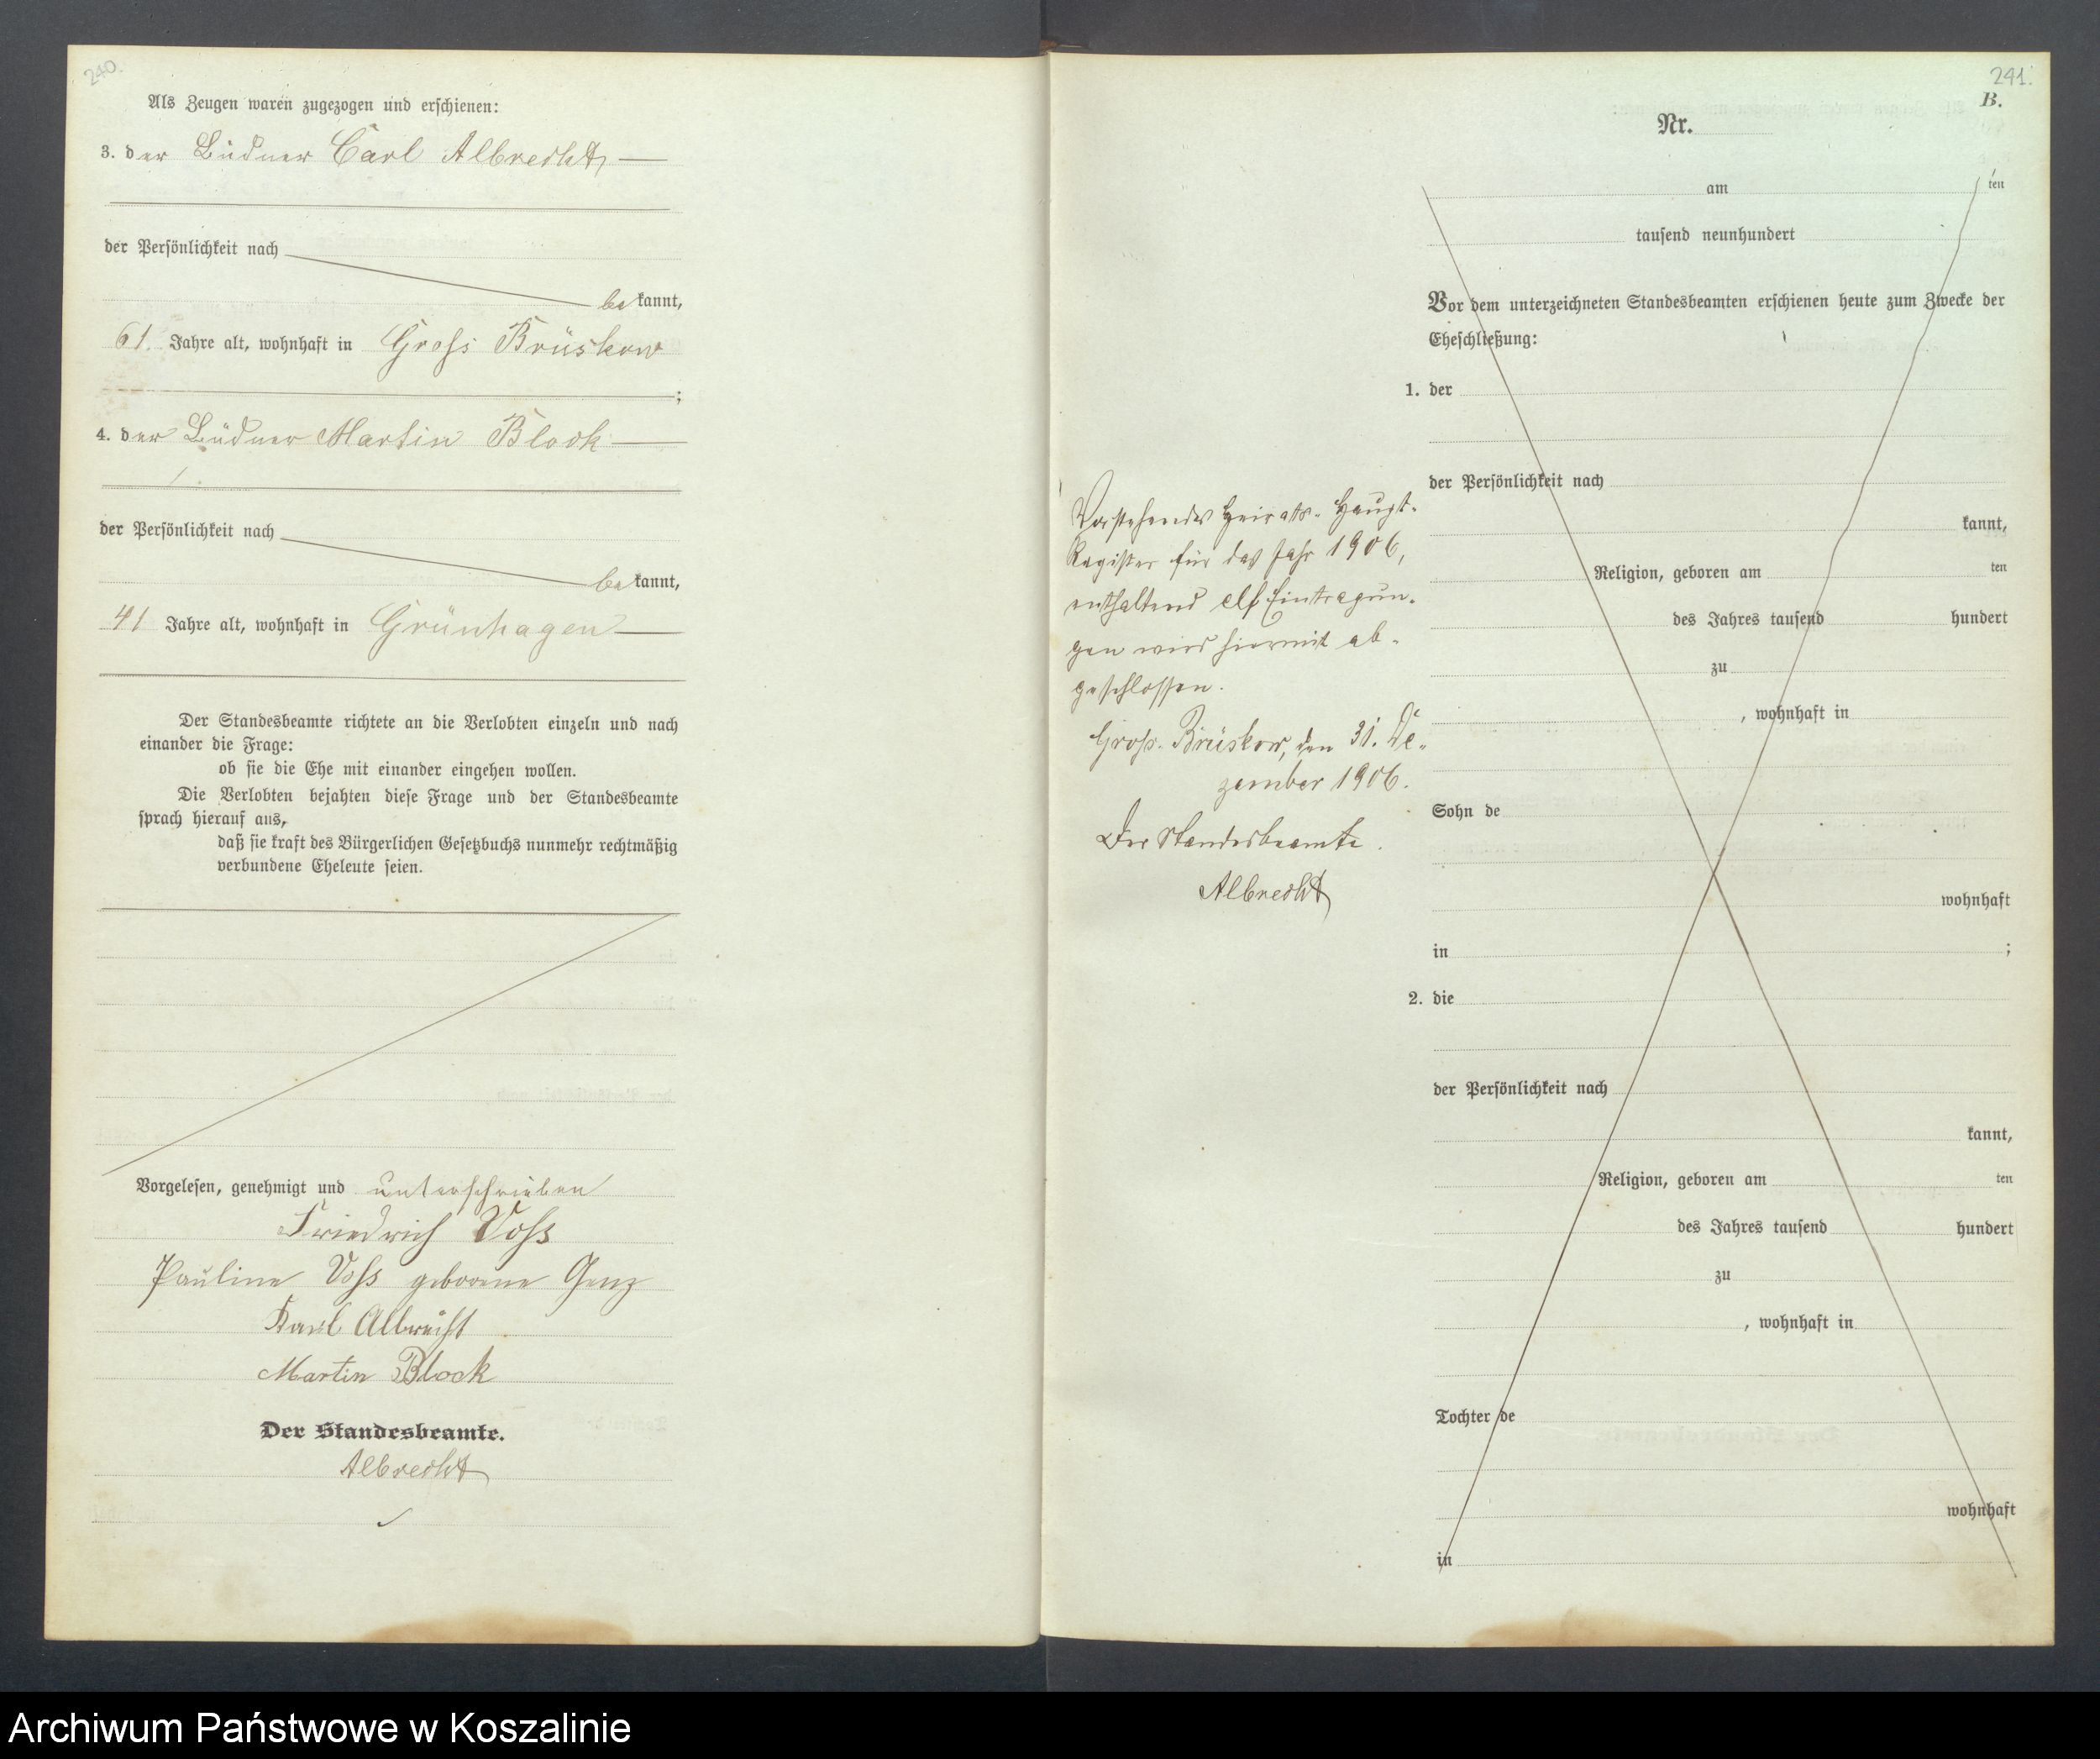 240.
Als Zeugen waren zugezogen und erschienen:
3. der Büdner Carl Albrecht
der Persönlichkeit nach
bekannt,
61 Jahre alt, wohnhaft in Gross Brüskow
;
4. der Büdner Martin Block
der Persönlichkeit nach
bekannt,
41 Jahre alt, wohnhaft in Grünhagen
Der Standesbeamte richtete an die Verlobten einzeln und nach
einander die Frage:
ob sie die Ehe mit einander eingehen wollen.
Die Verlobten bejahten diese Frage und der Standesbeamte
sprach hierauf aus,
daß sie kraft des Bürgerlichen Gesetzbuchs nunmehr rechtmäßig
verbundene Eheleute seien.
Vorgelesen, genehmigt und unterschrieben
Friedrich Voß
Pauline Voß geborene Genz
Karl Albrecht
Martin Block
Der Standesbeamte.
Albrecht
241.
B.
Nr.
am ten
tausend neunhundert
Vor dem unterzeichneten Standesbeamten erschienen heute zum Zwecke der
Eheschließung:
1. der
der Persönlichkeit nach
kannt,
Religion, geboren am ten
des Jahres tausend hundert
zu
, wohnhaft in
Sohn de
wohnhaft
in ;
2. die
der Persönlichkeit nach
kannt,
Religion, geboren am ten
des Jahres tausend hundert
zu
, wohnhaft in
Tochter de
wohnhaft
in
Vorstehendes Heirats-Haupt-
Register für das Jahr 1906,
enthaltend elf Eintragun-
gen wird hiermit ab-
geschlossen.
Groß-Brüskow, den 31. De-
zember 1906.
Der Standesbeamte.
Albrecht
Archiwum Państwowe w Koszalinie